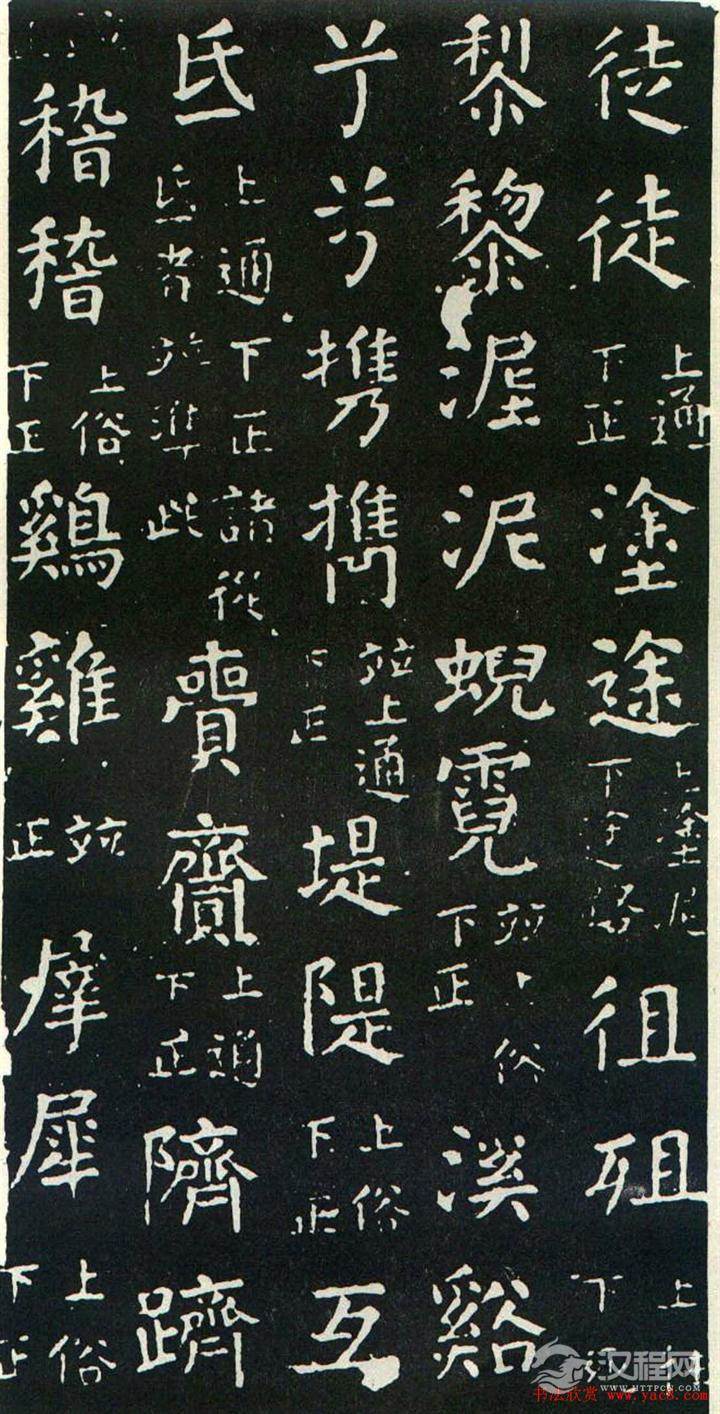 徒徒上通下正塗途上塗泥下途路徂殂上下
黎黎埿泥蜺霓並上俗下正溪谿
兮兮携㩦並上通下正堤隄上俗下正互
氐上通下正諸從氐者並準此賷齎上通下正隮躋
稽稽上俗下正鷄雞並正犀犀上俗下正
汉程网
WWW.HTTPCN.COM
书法欣赏 www.yac8.com